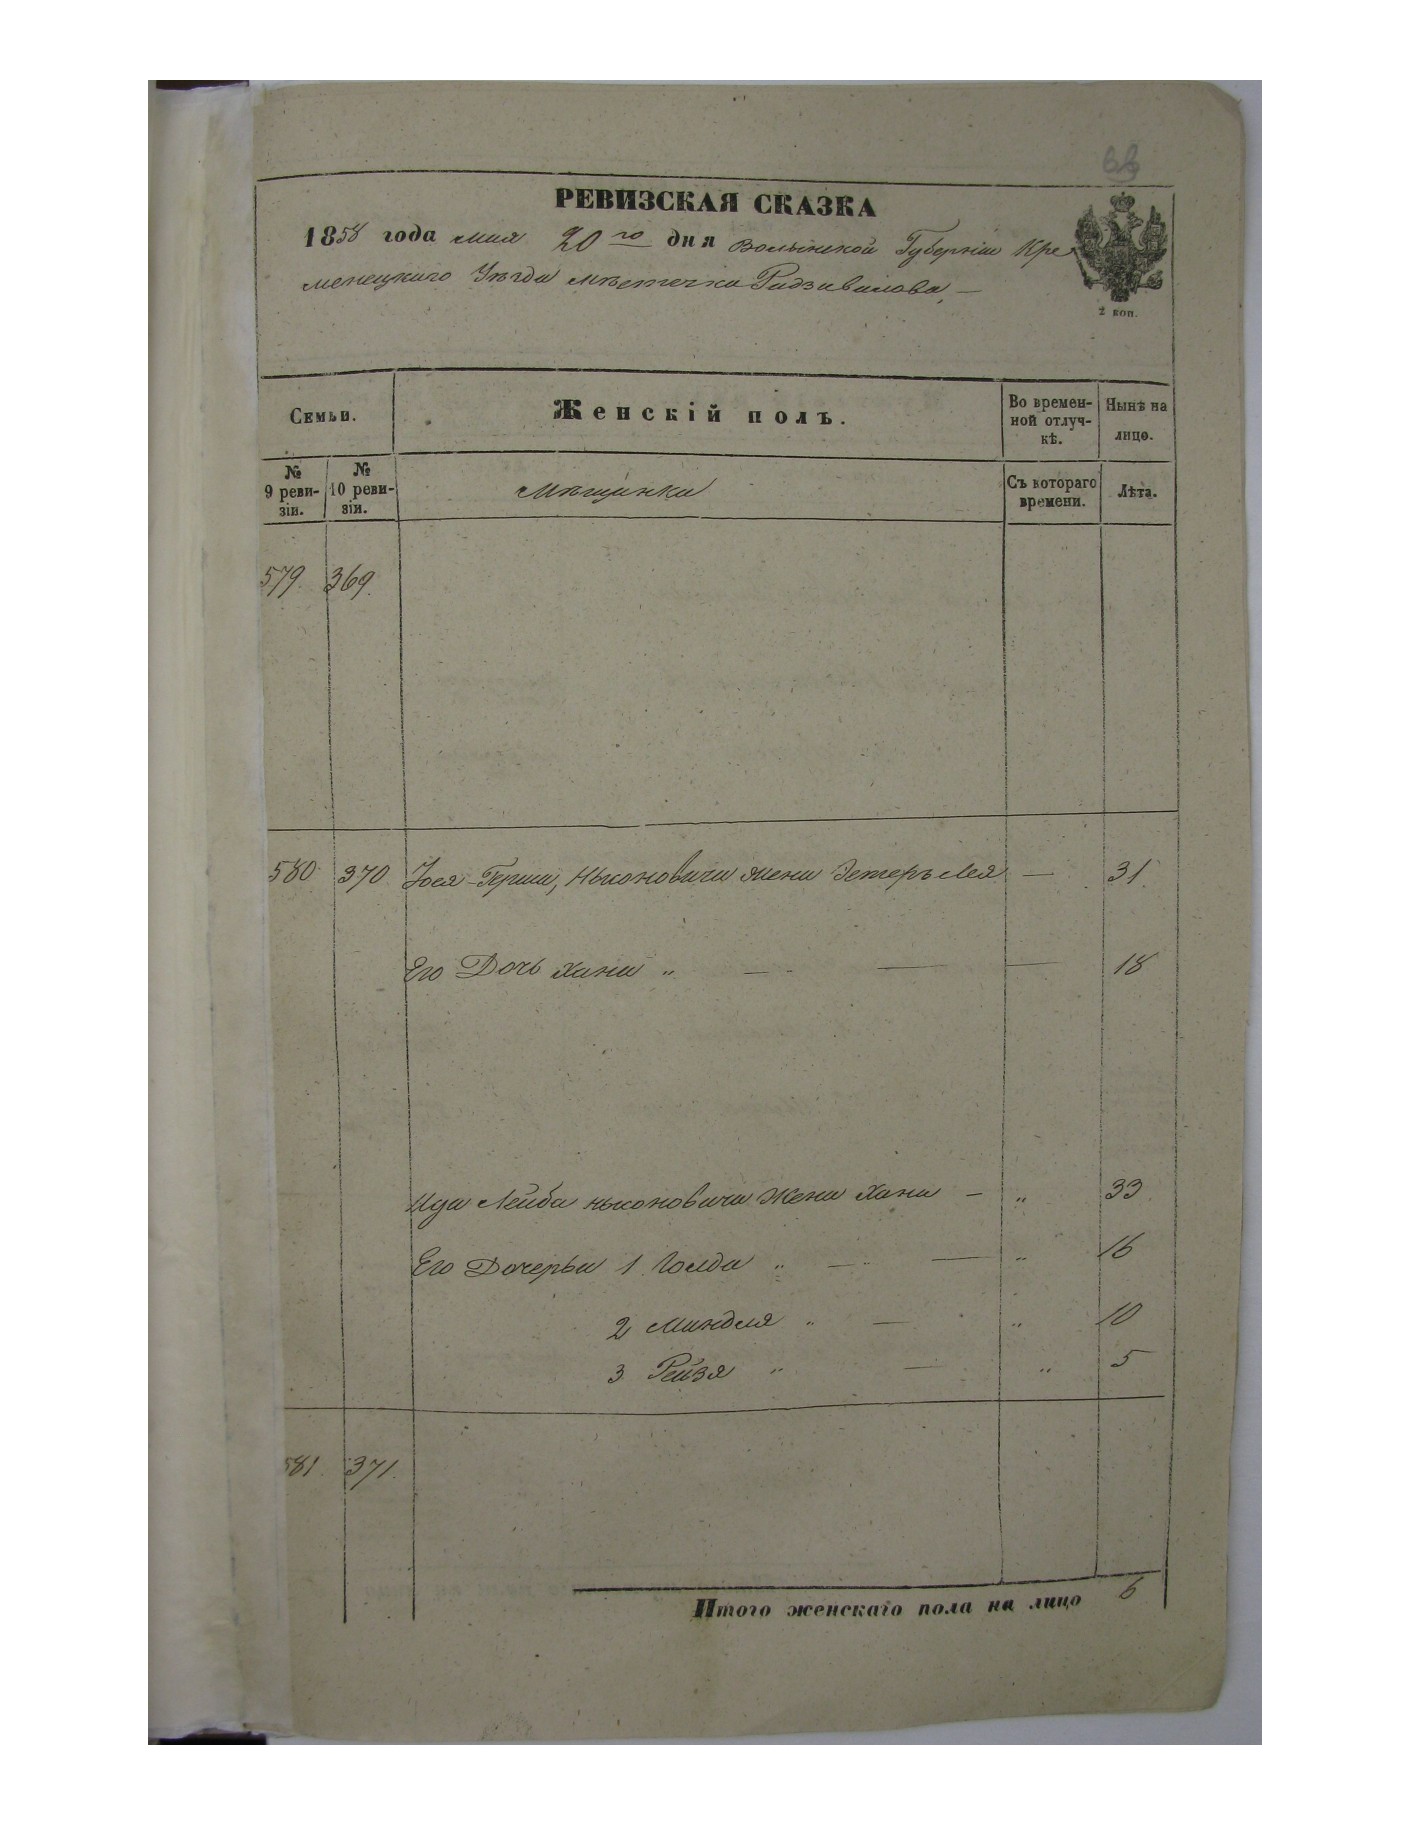 РЕВИЗСКАЯ СКАЗКА
1858 года мая 20го дня Волынской Губерніи Кре
менецкаго Уѣзда мѣстечка Радзивилова —
2 коп.
Семьи.
Женскій полъ.
Во времен-
ной отлуч-
кѣ.
Нынѣ на
лицо.
№
9 реви-
зіи.
№
10 реви-
зіи.
Мѣщанки
Съ котораго
времени.
Лѣта.
579. 369.
580 370 Іося-Герша, Ньконовича жена Эстеръ Лея — 31.
Его Дочь Хана „ — — — 18
Ида Лейба ньконовича Жена Хана — „ 33
Его Дочерьи 1 Голда „ — — „ 16
2 Миндля „ — „ 10
3 Рейзя „ — „ 5
581. 371.
Итого женскаго пола на лицо 6